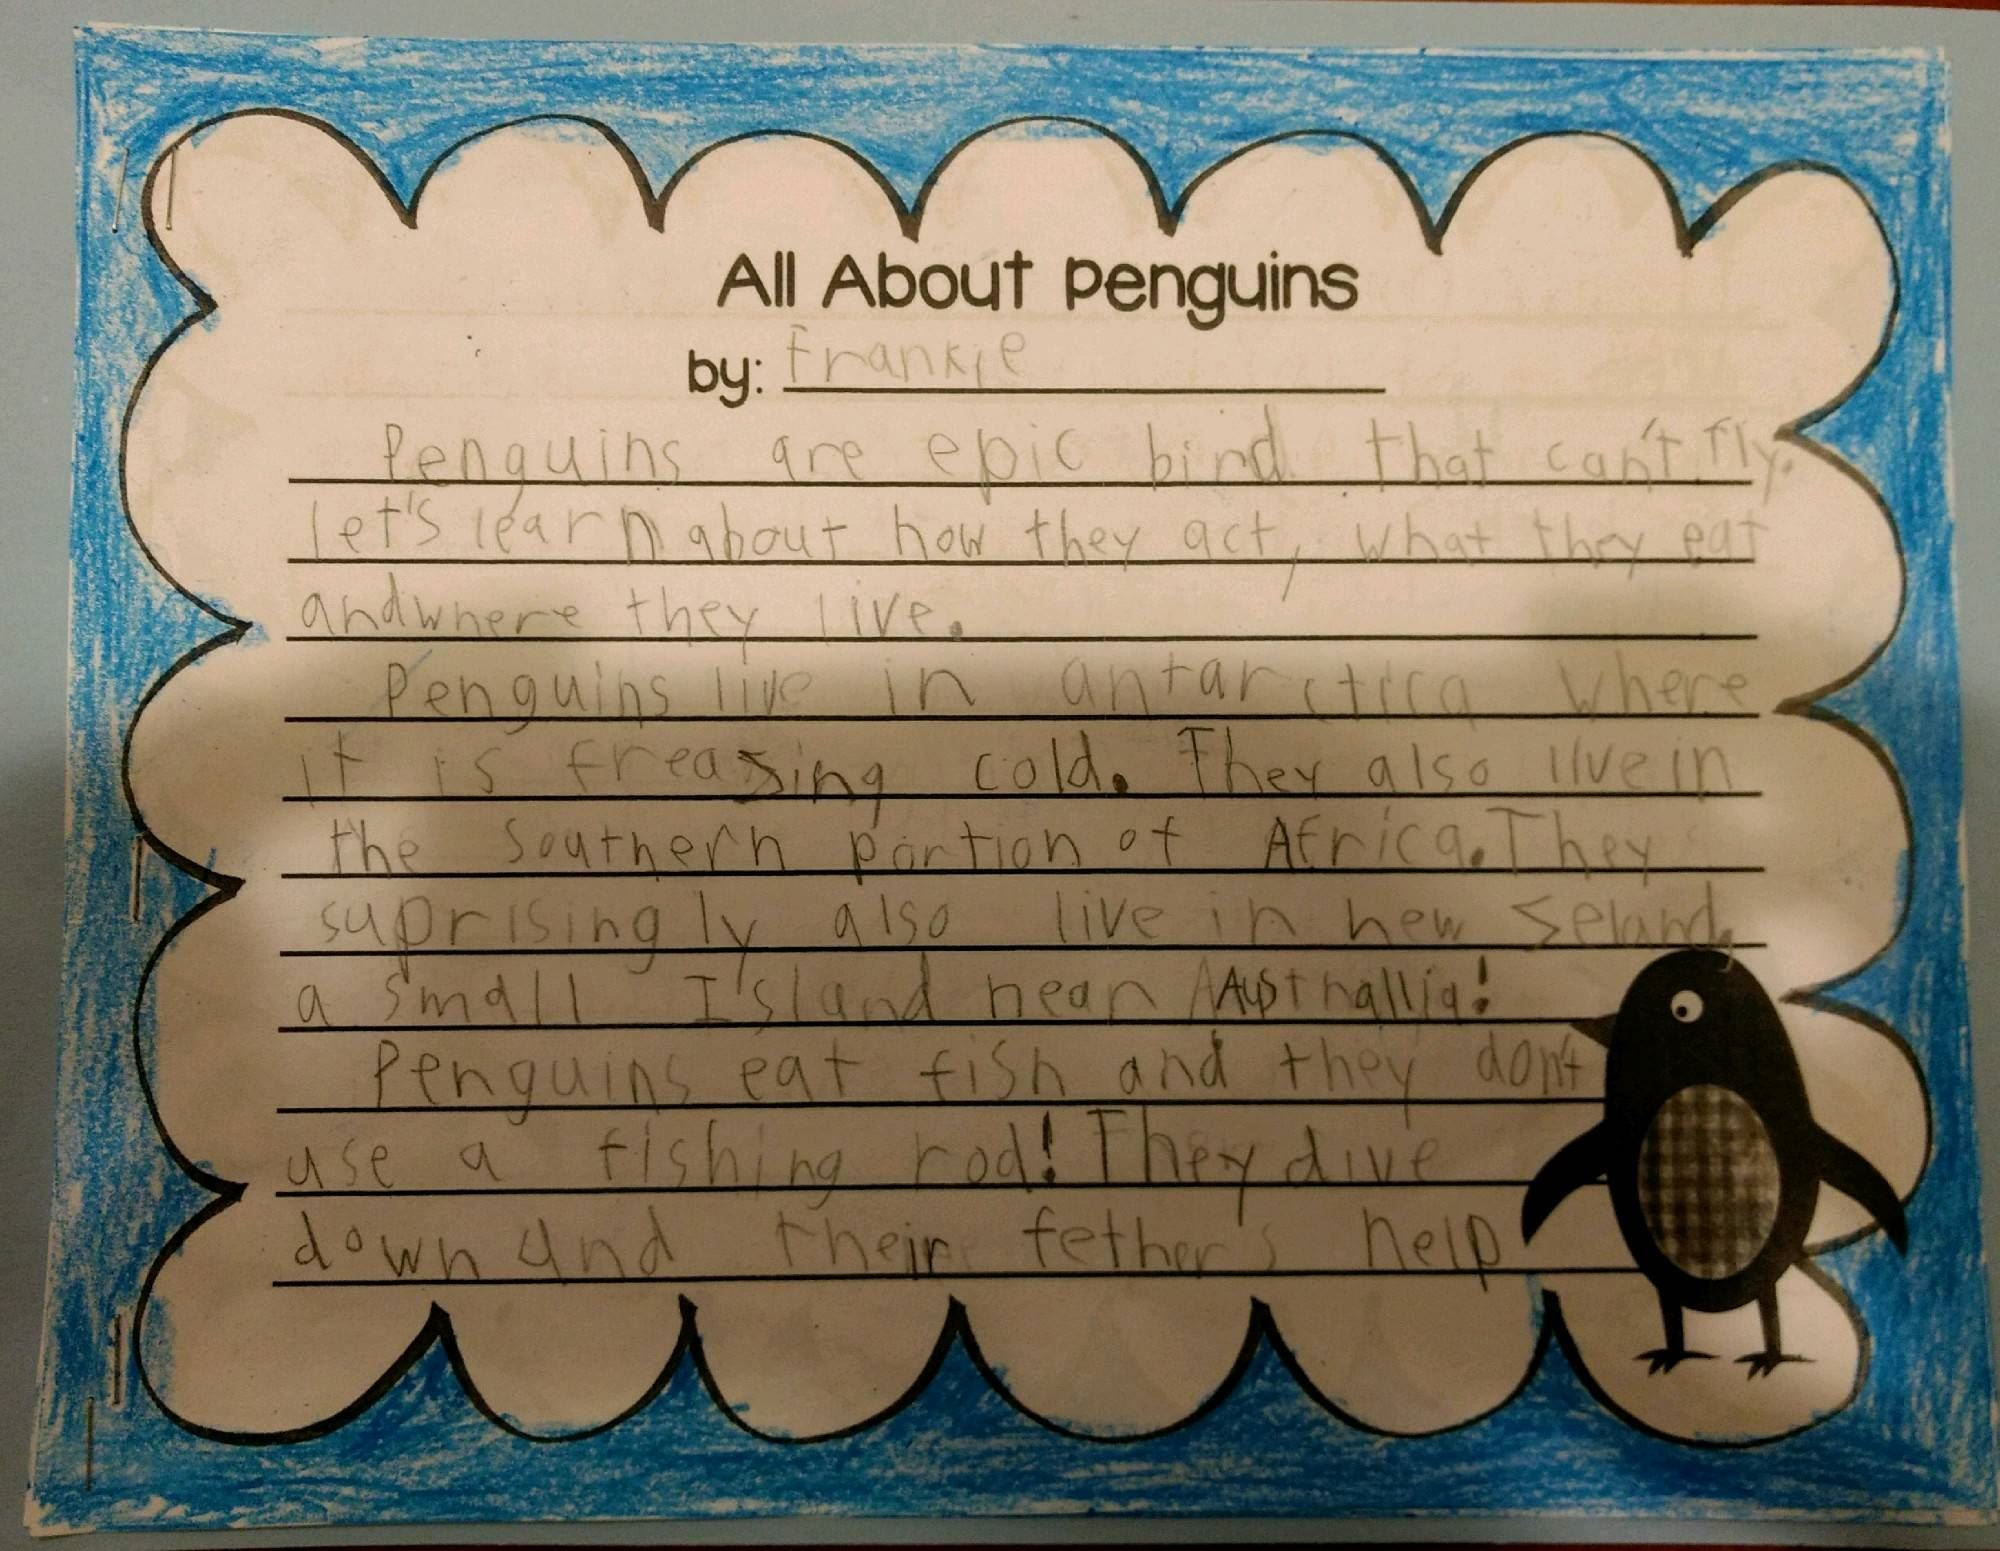 All About Penguins
by: Frankie
Penguins are epic bird that can't fly.
let's learn about how they act, what they eat
and where they live.
Penguins live in antarctica where
it is freazing cold. They also live in
the southern portion of Africa. They
suprisingly also live in new Seland,
a small Island near Australlia!
Penguins eat fish and they don't
use a fishing rod! They dive
down and their fether's help